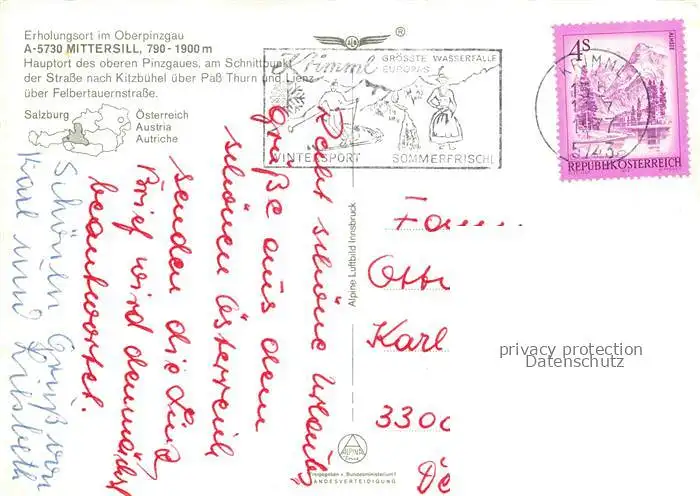 Erholungsort im Oberpinzgau
A-5730 MITTERSILL, 790-1900 m
Hauptort des oberen Pinzgaues, am Schnittpunkt
der Straße nach Kitzbühel über Paß Thurn und Lienz
über Felbertauernstraße.
Salzburg
Österreich
Austria
Autriche
Krimml
GRÖSSTE WASSERFÄLLE
EUROPAS
WINTERSPORT SOMMERFRISCHE
KRIMML
77
5743
4S
ALMSEE
REPUBLIK ÖSTERREICH
Recht schöne Urlaubs
grüße aus dem
schönen Österreich
senden die
Brief wird demnächst
beantwortet.
Schönen Gruß von
Karl und Liesbeth
Alpine Luftbild Innsbruck
Fam
Otto
Karl
3300
privacy protection
Datenschutz
ALPINA
Freigegeben v. Bundesministerium f.
LANDESVERTEIDIGUNG